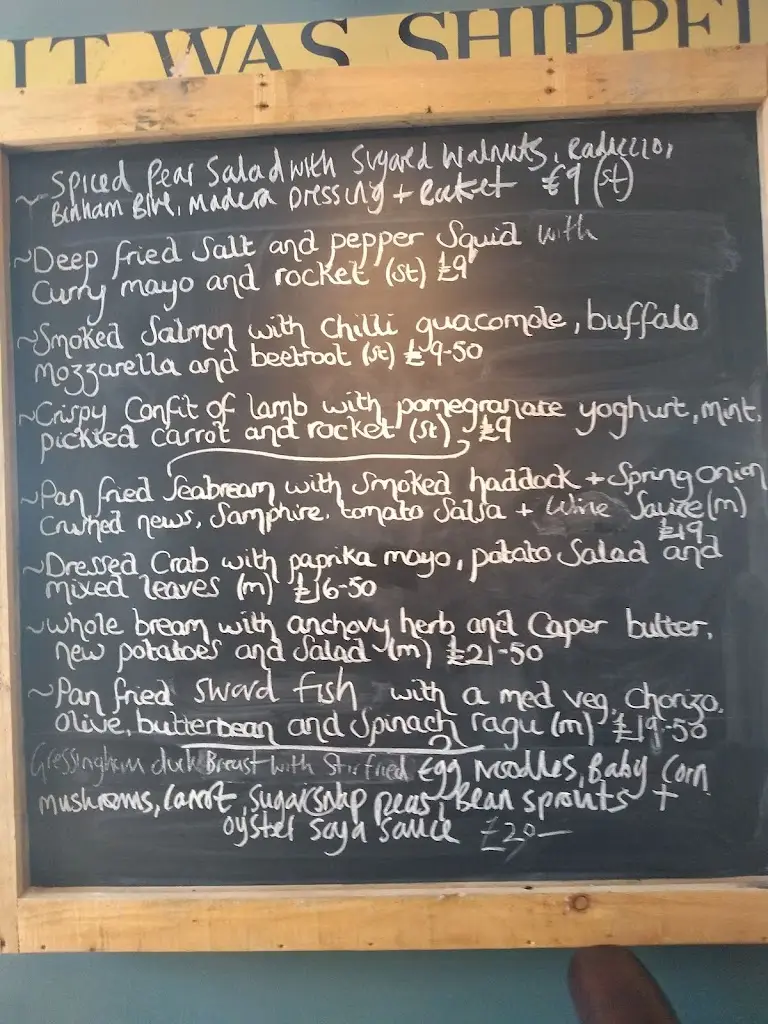 IT WAS SHIPPE
~ Spiced Pear Salad with Sugared Walnuts, Radiccio,
Binham Blue, Madera Dressing + Rocket £9 (st)
~Deep fried Salt and pepper Squid with
Curry mayo and rocket (st) £9
~Smoked Salmon with Chilli guacomole, buffalo
mozzarella and beetroot (st) £9-50
~Crispy Confit of lamb with pomegranate yoghurt, mint,
pickled carrot and rocket (st) £9
~Pan fried Seabream with Smoked haddock + Spring onion
Crushed news, Samphire, tomato Salsa + Wine Sauce (m)
£19
~Dressed Crab with paprika mayo, potato Salad and
mixed leaves (m) £16-50
~whole bream with anchovy herb and Caper butter,
new potatoes and Salad (m) £21-50
~Pan fried sword fish with a med veg, Chorizo,
olive, butterbean and Spinach ragu (m) £19-50
Gressingham duck Breast with Stirfried Egg Noodles, Baby Corn
mushrooms, Carrot, sugarsnap peas, Bean sprouts +
oyster Soya Sauce £20-